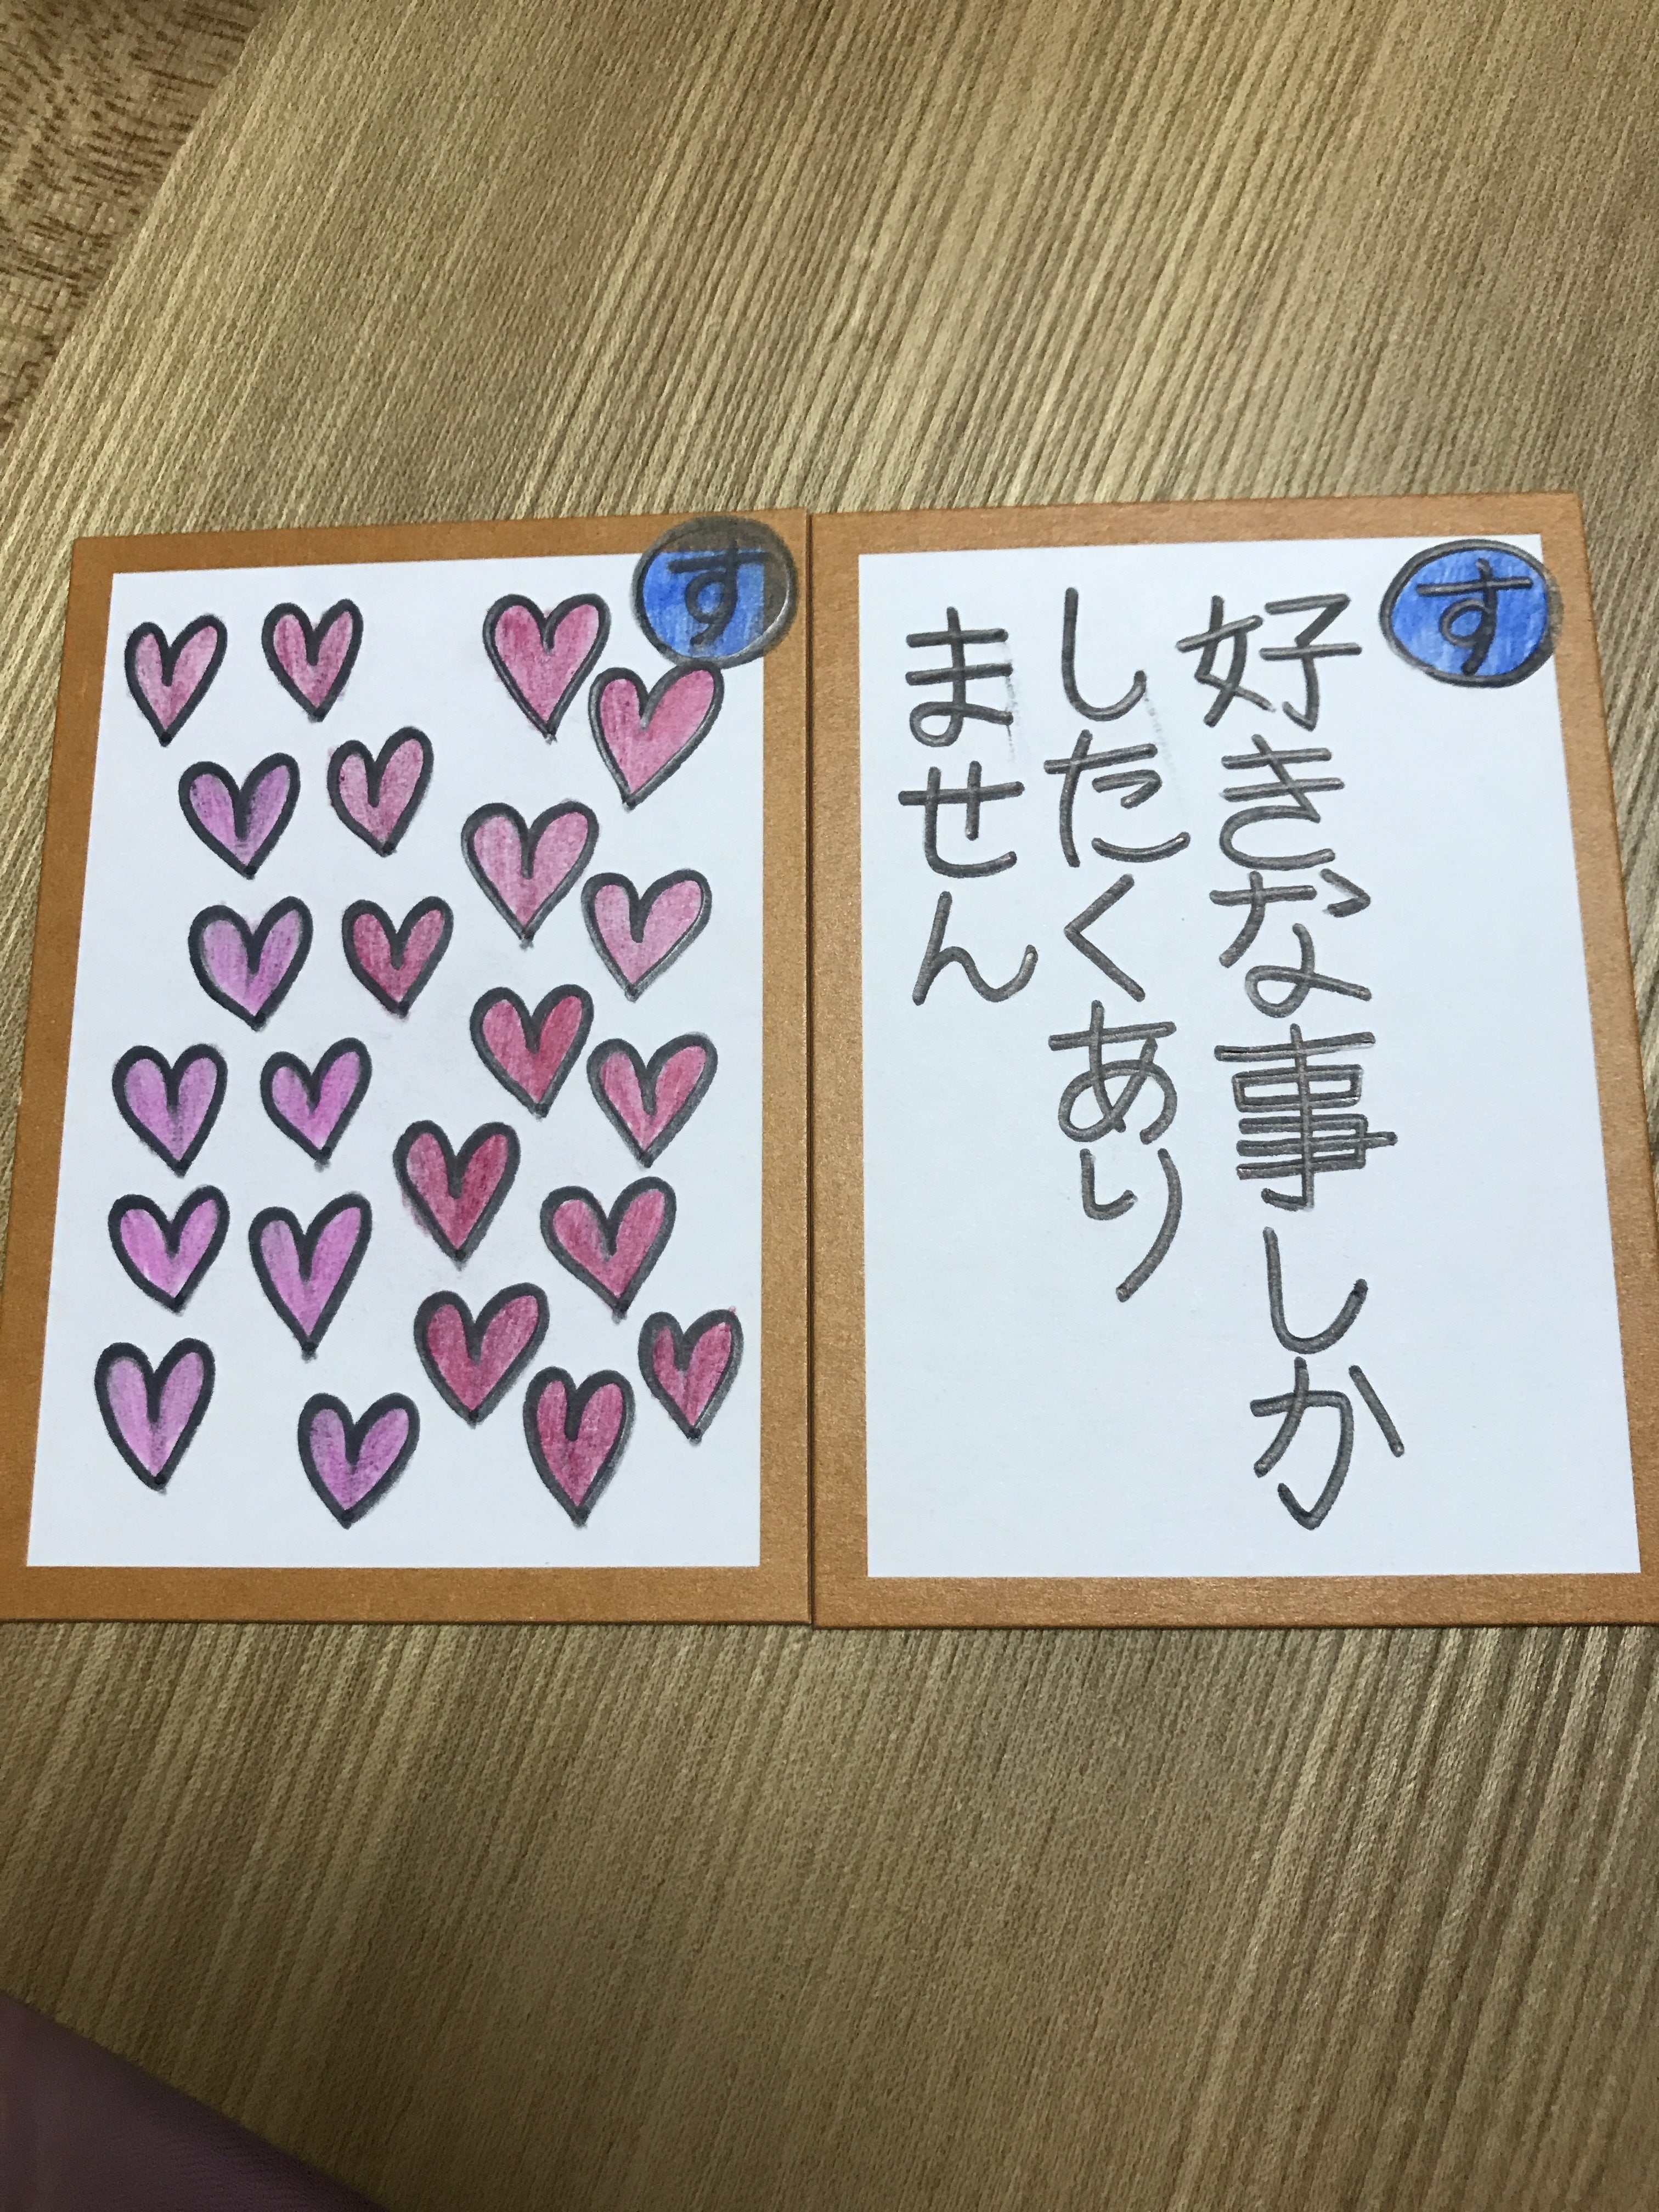 す
好きな事しか
したくあり
ません
す